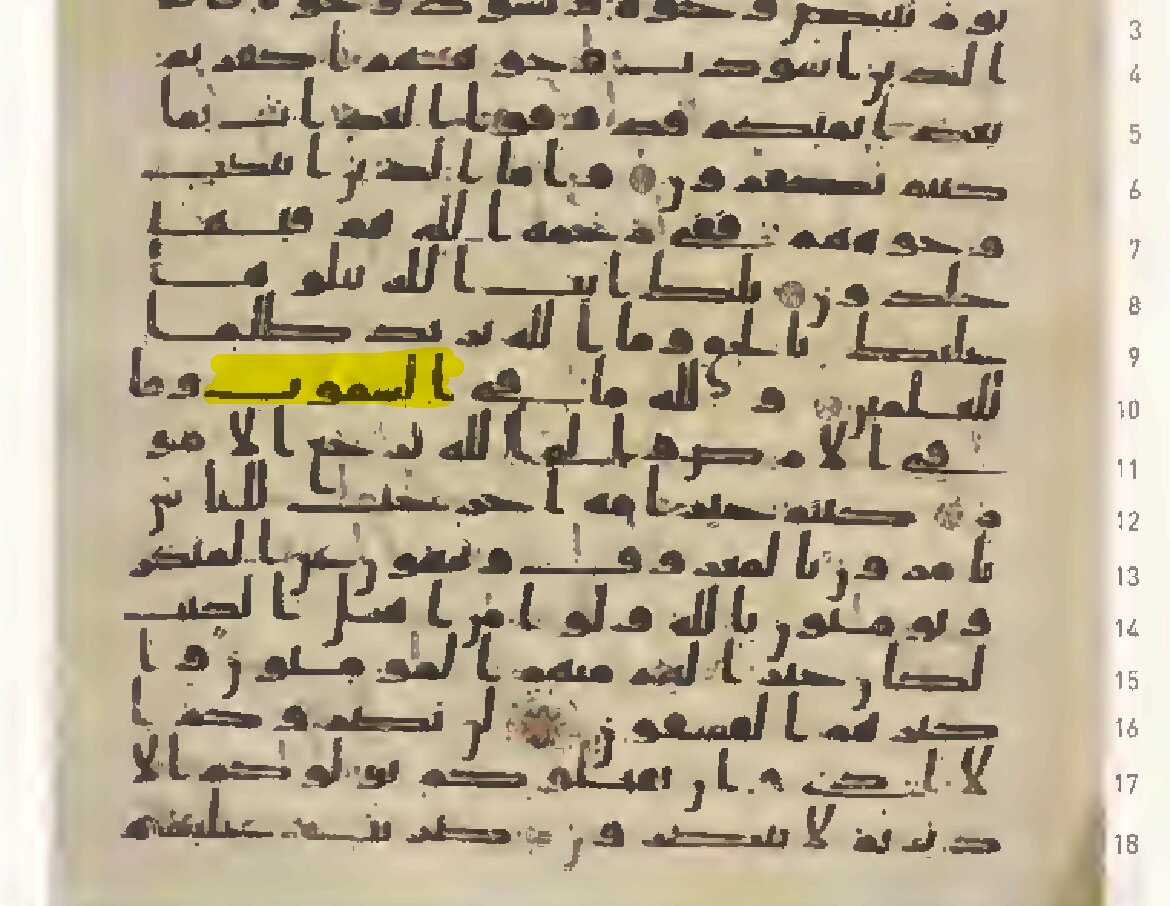 يوم تبيض وجوه وتسود وجوه فاما 3
الذين اسودت وجوههم اكفرتم 4
بعد ايمنكم فذوقوا العذاب بما 5
كنتم تكفرون واما الذين ابيضت 6
وجوههم ففي رحمه الله هم فيها 7
خلدون تلك ايت الله نتلوها 8
عليك بالحق وما الله يريد ظلما 9
للعلمين ولله ما في السموت وما 10
في الارض والى الله ترجع الامو 11
ر كنتم خير امه اخرجت للناس 12
تامرون بالمعروف وتنهون عن المنكر 13
وتومنون بالله ولو امن اهل الكتب 14
لكان خيرا لهم منهم المومنون وا 15
كثرهم الفسقون لن يضروكم ا 16
لا اذى وان يقتلوكم يولوكم الا 17
دبر ثم لا ينصرون ضربت عليهم 18